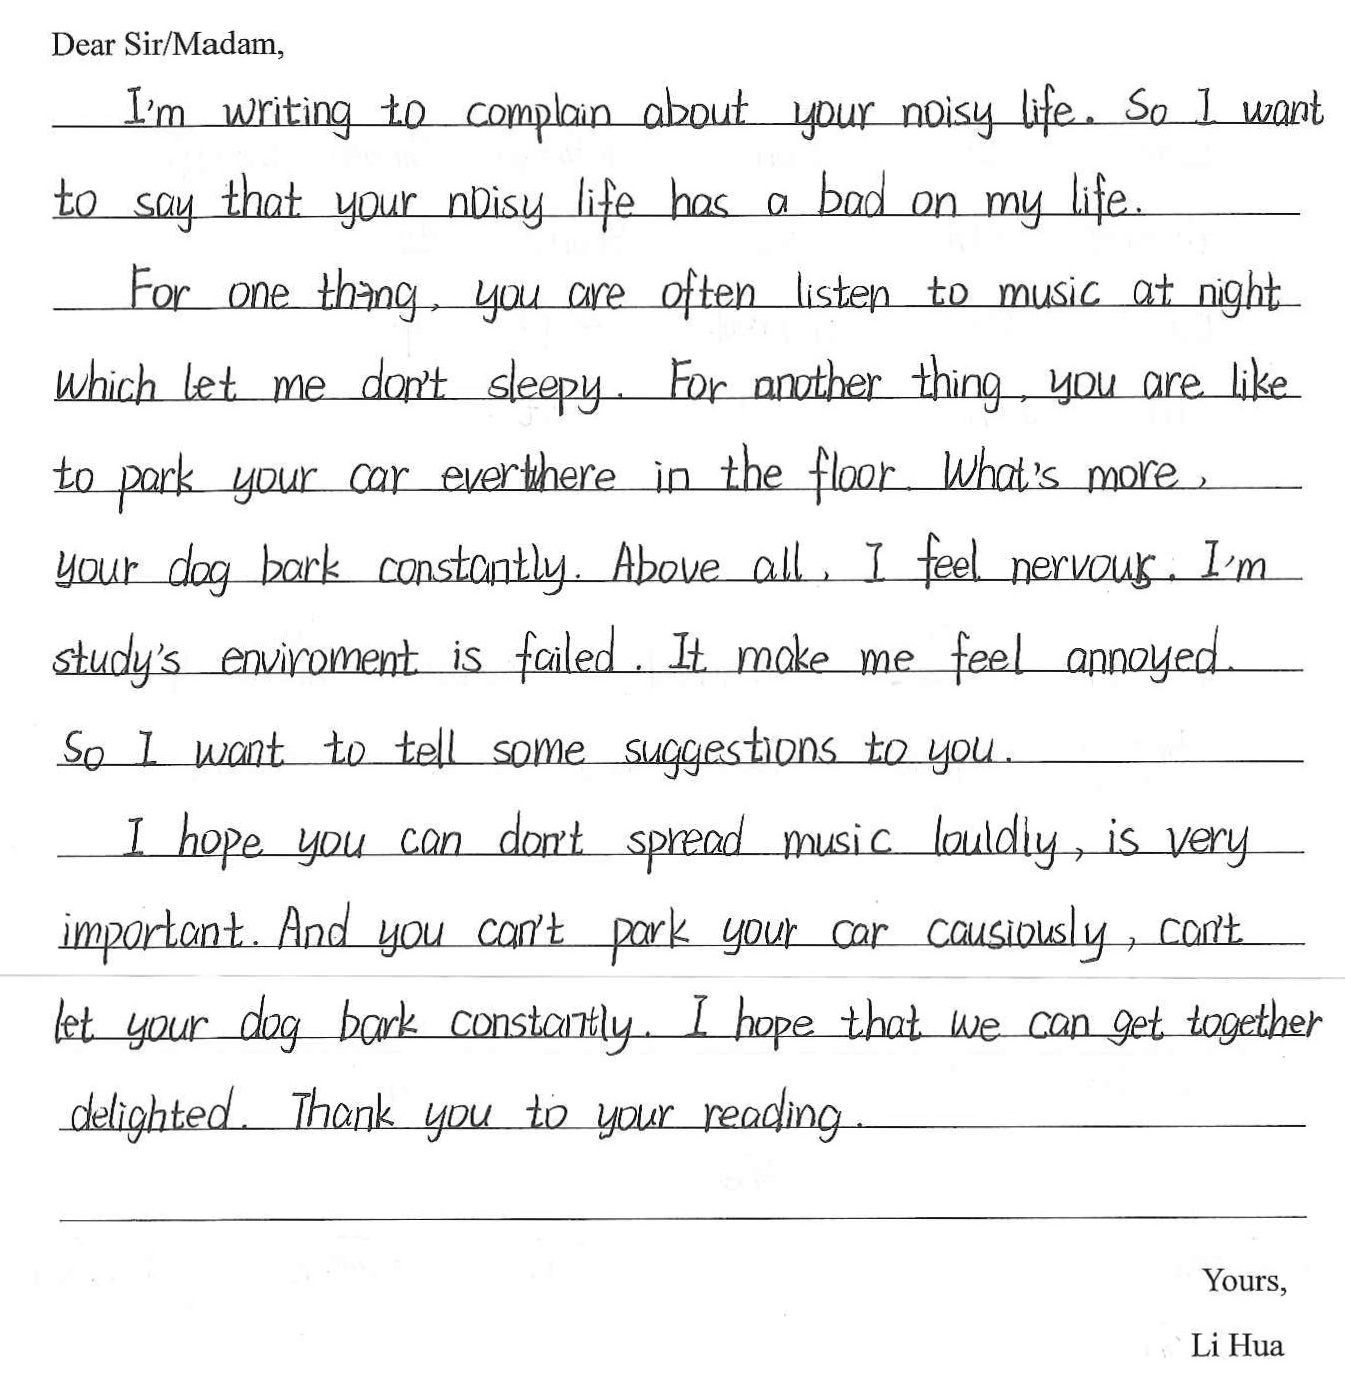 Dear Sir/Madam,
I'm writing to complain about your noisy life. So I want
to say that your noisy life has a bad on my life.
For one thing, you are often listen to music at night
which let me don't sleepy. For another thing, you are like
to park your car everthere in the floor. What's more,
your dog bark constantly. Above all, I feel nervous. I'm
study's enviroment is failed. It make me feel annoyed.
So I want to tell some suggestions to you.
I hope you can don't spread music louldly, is very
important. And you can't park your car causiously, can't
let your dog bark constantly. I hope that we can get together
delighted. Thank you to your reading.
Yours,
Li Hua